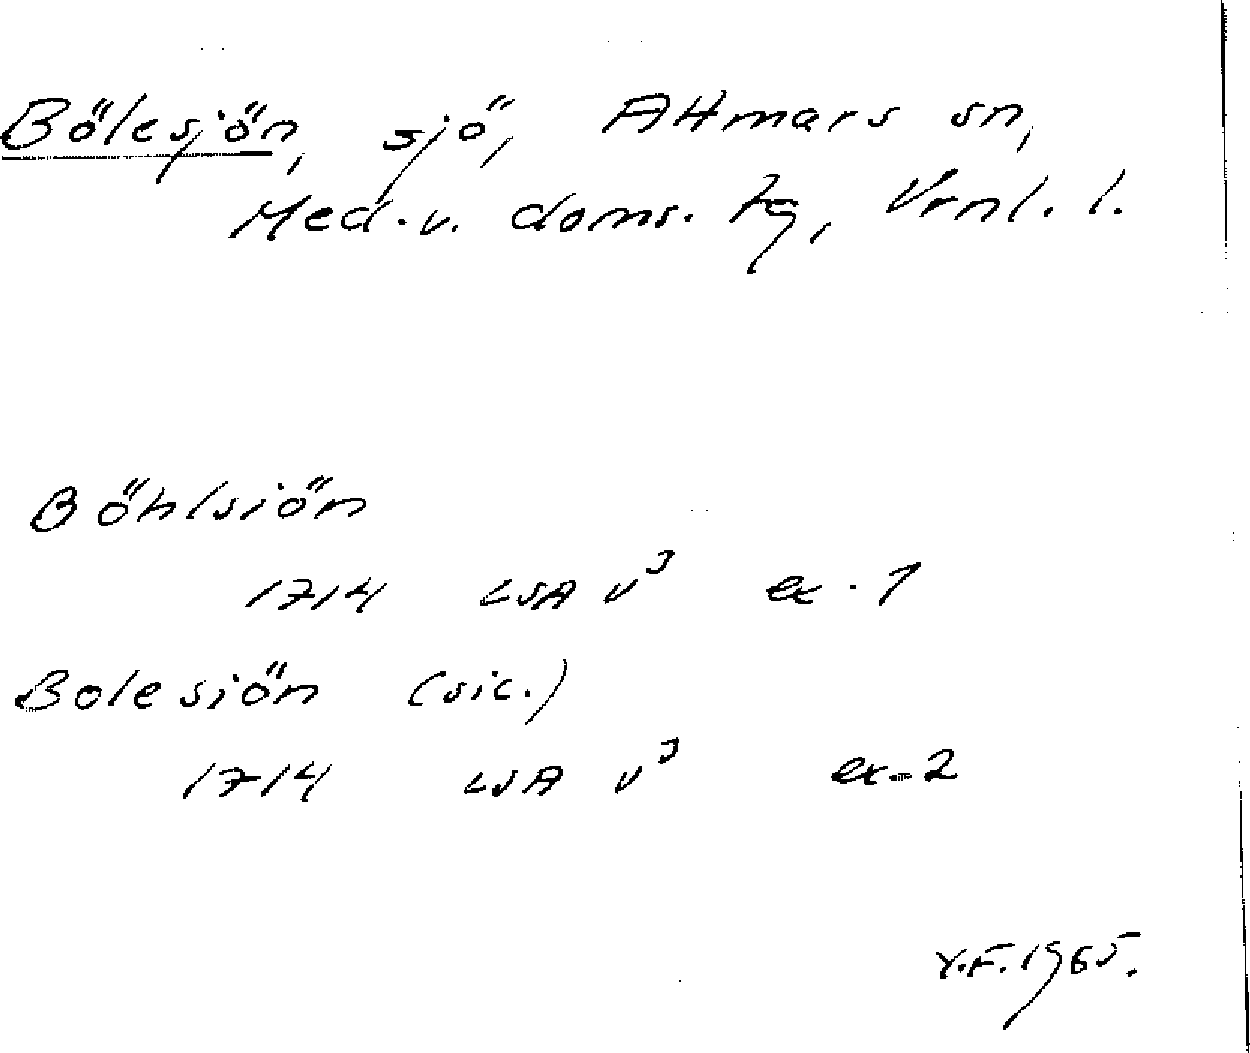 Bölesjön, sjö, Attmars sn,
Med. v. doms. tg, Vrnl. l.
Böhlsiön
1714 LSA v³ ex. 1
Bolesiön (sic.)
1714 LSA v³ ex. 2
Y.F. 1965.